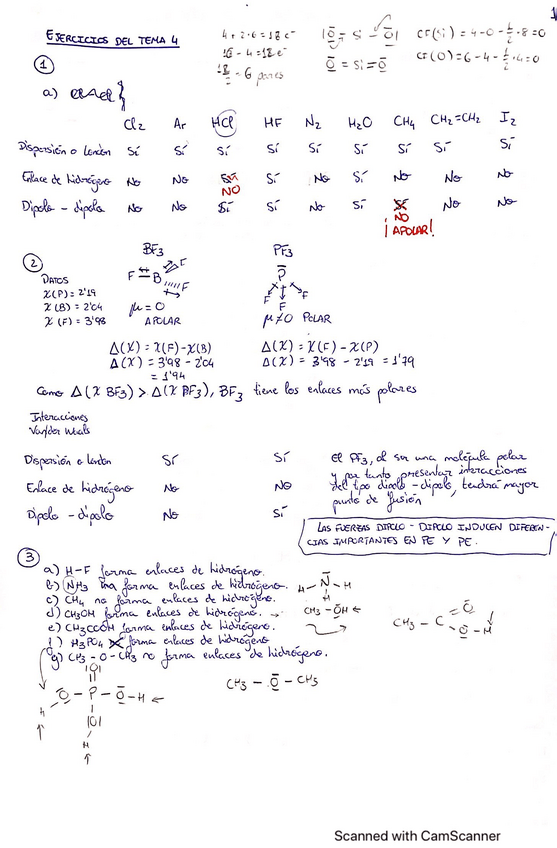 1
EJERCICIOS DEL TEMA 4
4 + 2·6 = 16 e⁻
16 - 4 = 12 e⁻
12/2 = 6 pares
|O̅ - Si - O̅|
O̅ = Si = O̅
CF(Si) = 4 - 0 - 1/2 · 8 = 0
CF(O) = 6 - 4 - 1/2 · 4 = 0
①
a)
Cl2 Ar HCl HF N2 H2O CH4 CH2=CH2 I2
Dispersión o London Sí Sí Sí Sí Sí Sí Sí Sí Sí
Enlace de hidrógeno No No Sí No Sí No No No
NO
Dipolo - dipolo No No Sí Sí No Sí Sí No No
NO
¡APOLAR!
②
BF3 PF3
DATOS
χ(P) = 2'19
χ(B) = 2'04
χ(F) = 3'98
F B F F
P̅ F F F
μ = 0
APOLAR
μ ≠ 0 POLAR
Δ(χ) = χ(F) - χ(B)
Δ(χ) = 3'98 - 2'04
= 1'94
Δ(χ) = χ(F) - χ(P)
Δ(χ) = 3'98 - 2'19 = 1'79
Como Δ(χ BF3) > Δ(χ PF3), BF3 tiene los enlaces más polares
Interacciones
Van der Waals
Dispersión o London Sí Sí
Enlace de hidrógeno No No
Dipolo - dipolo No Sí
El PF3, al ser una molécula polar
y por tanto presentar interacciones
del tipo dipolo - dipolo, tendrá mayor
punto de fusión
LAS FUERZAS DIPOLO - DIPOLO INDUCEN DIFEREN-
CIAS IMPORTANTES EN PE Y PE.
③
a) H-F forma enlaces de hidrógeno.
b) NH3 forma enlaces de hidrógeno.
c) CH4 no forma enlaces de hidrógeno.
d) CH3OH forma enlaces de hidrógeno. →
e) CH3COOH forma enlaces de hidrógeno.
f) H3PO4 forma enlaces de hidrógeno
g) CH3 - O - CH3 no forma enlaces de hidrógeno.
H - N̅ - H
H
CH3 - O̅H ←
CH3 - C O̅ O̅ - H
CH3 - O̅ - CH3
|O|
H O̅ - P - O̅ - H ←
|O|
H
Scanned with CamScanner